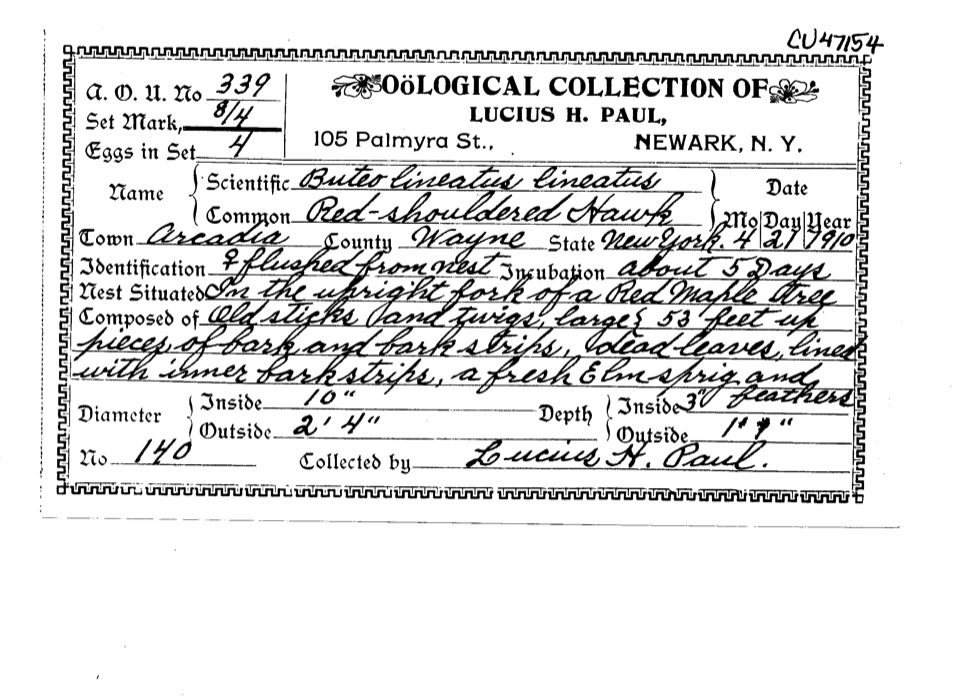 CU47154
A. O. U. No 339
OöLOGICAL COLLECTION OF
Set Mark, 8/4
LUCIUS H. PAUL,
Eggs in Set 4
105 Palmyra St., NEWARK, N. Y.
Name { Scientific Buteo lineatus lineatus } Date
Common Red-shouldered Hawk Mo Day Year
Town Arcadia County Wayne State New York. 4 21 1910
Identification ♀ flushed from nest Incubation about 5 Days
Nest Situated In the upright fork of a Red Maple tree
Composed of Old sticks and twigs, large { 53 feet up
pieces of bark and bark strips, dead leaves, lined
with inner bark strips, a fresh Elm sprig and
feathers
Diameter { Inside 10" Depth { Inside 3"
Outside 2' 4" Outside 1'
No 140 Collected by Lucius H. Paul.